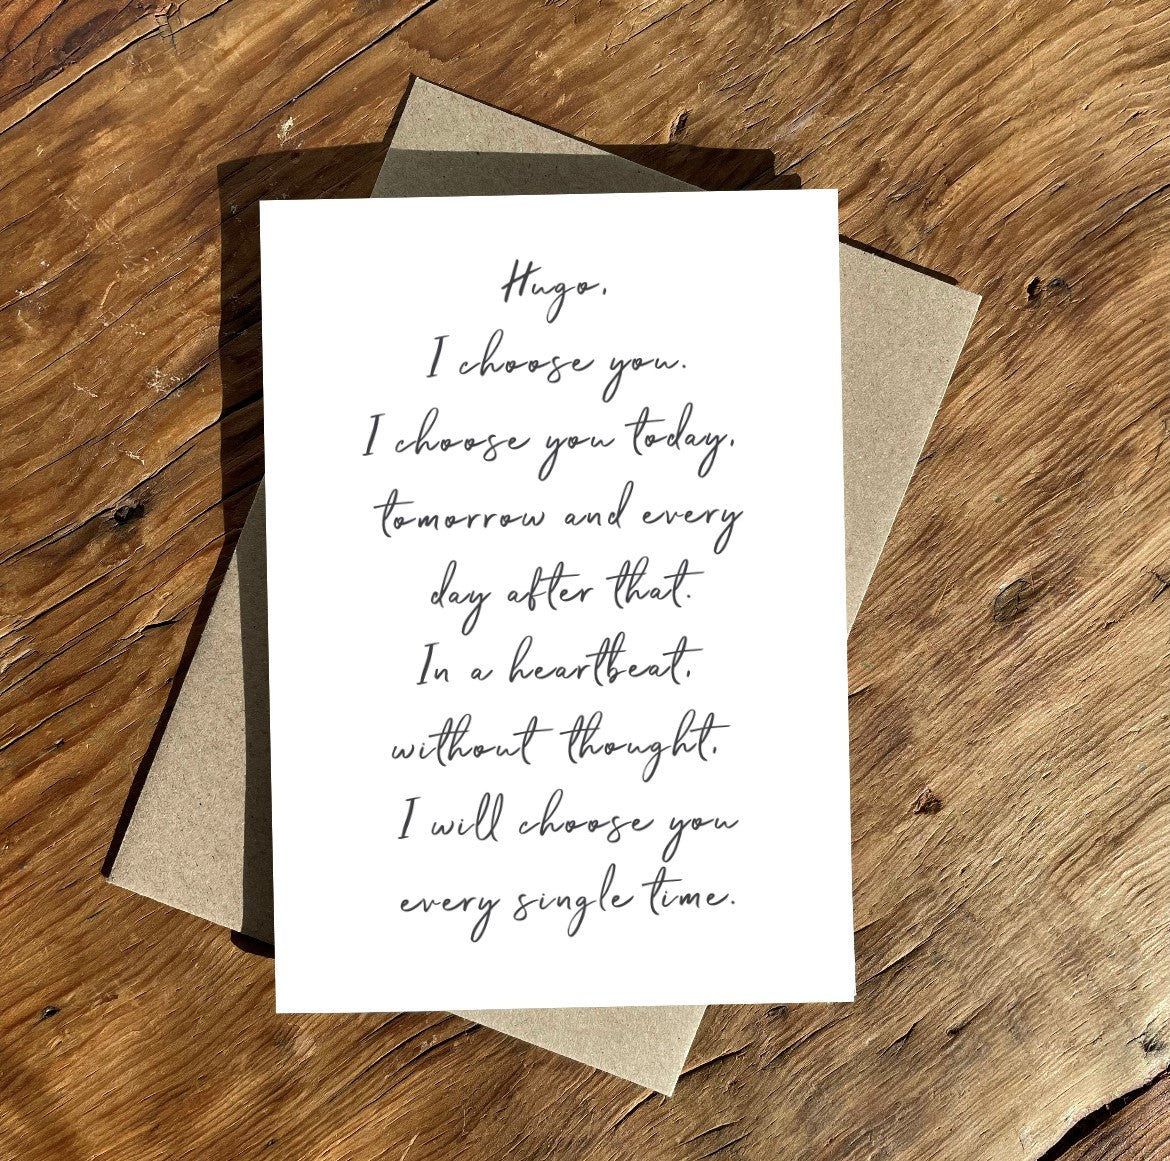 Hugo,
I choose you.
I choose you today,
tomorrow and every
day after that.
In a heartbeat,
without thought,
I will choose you
every single time.